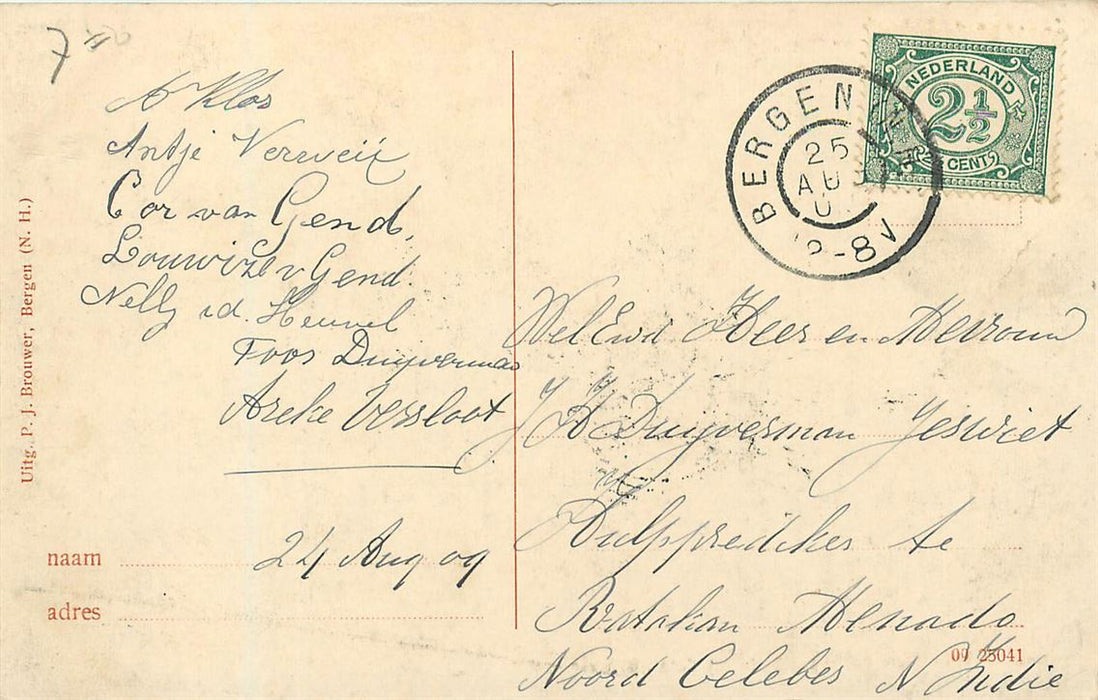 7
A Klos
Antje Verweij
Cor van Gend.
Louwize v Gend.
Nelly v d. Heuvel
Toos Duyverman
Areke Versloot
24 Aug 09
naam
adres
Uitg. P. J. Brouwer, Bergen (N. H.)
NEDERLAND
2½
CENT
BERGEN
25
AU
8V
WelEwd Heer en Mevrouw
J H Duyverman Jeswiet
Hulpprediker te
Ratahan Menado
Noord Celebes N Indie
09 25041